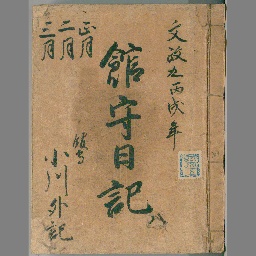 文政九丙戌年
館守日記
正月
二月
三月
館守
小川外記